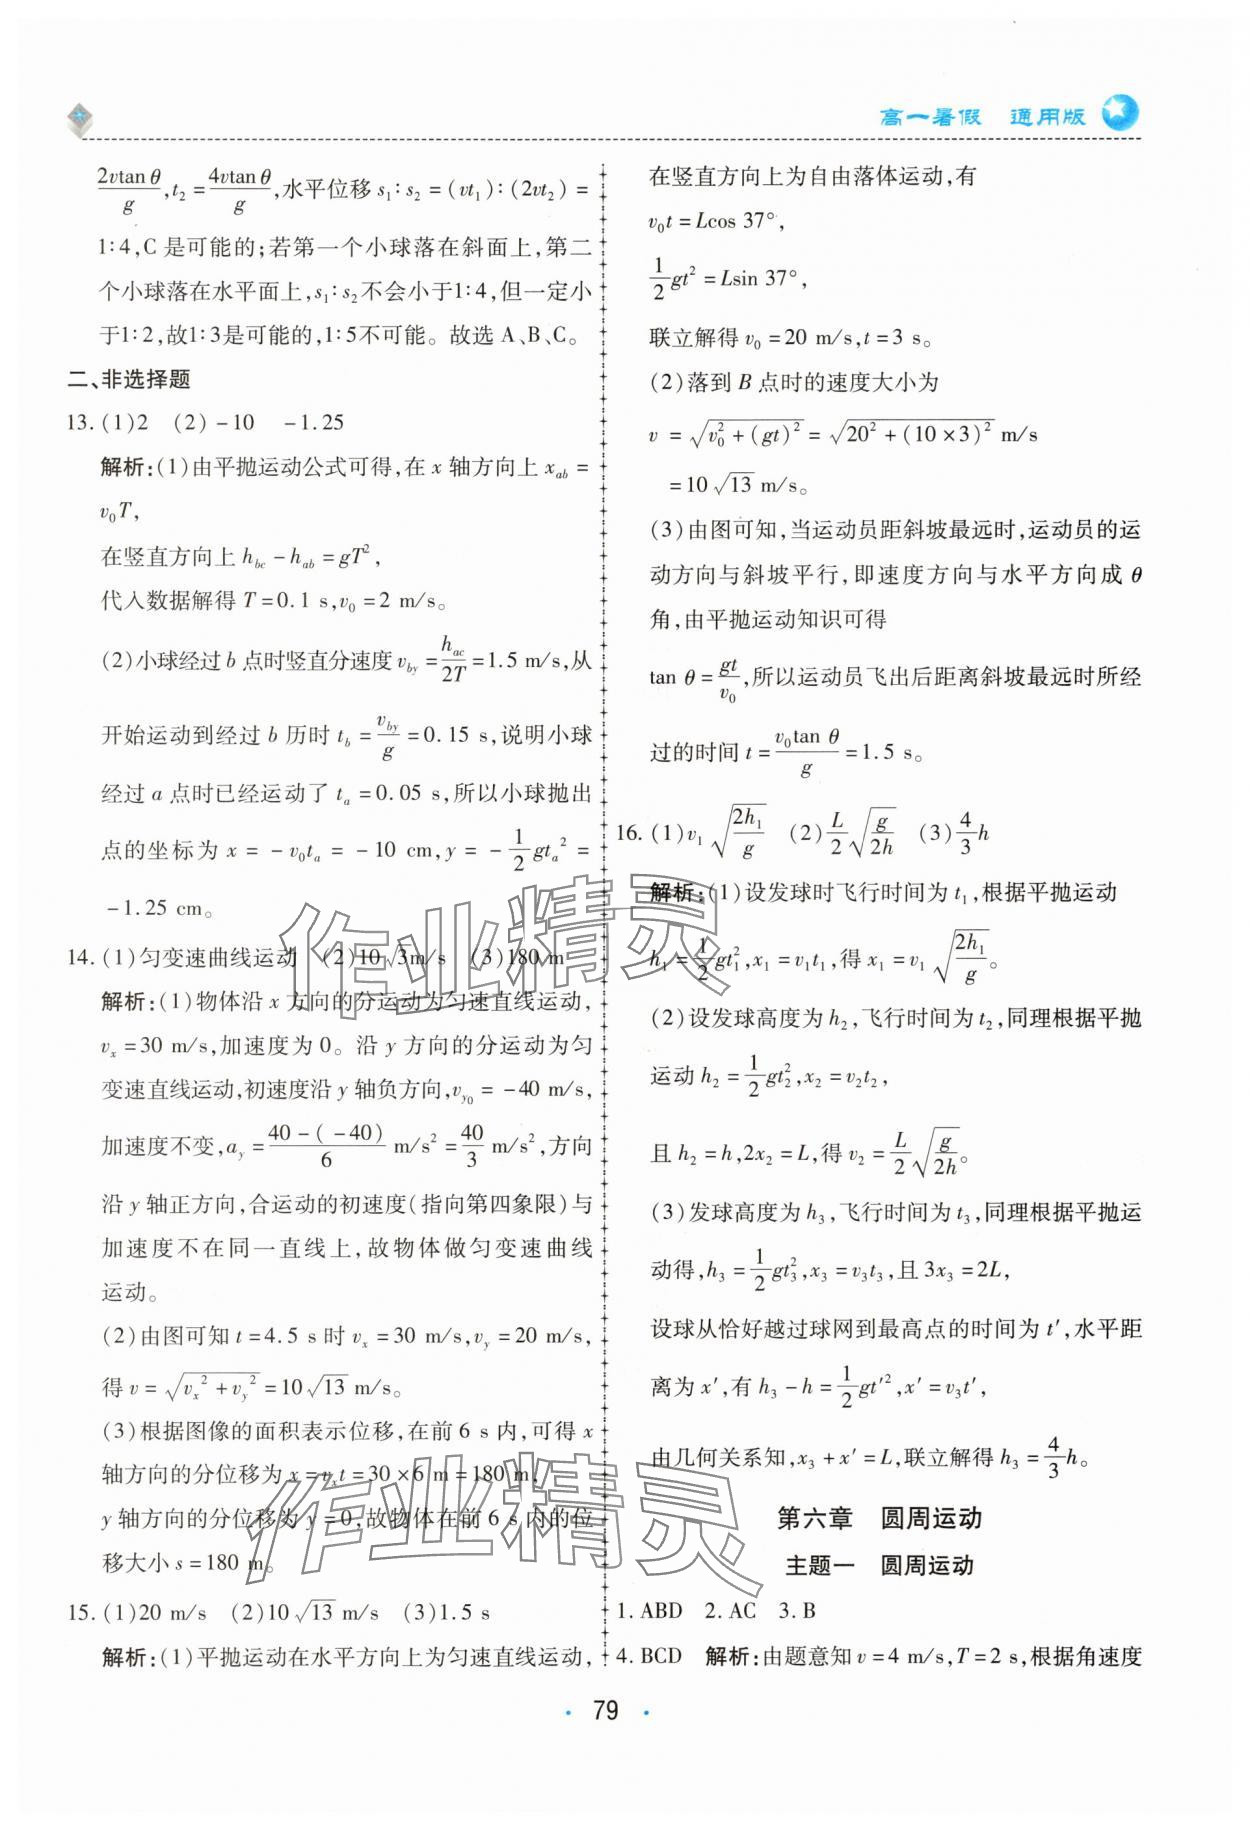 高一暑假 通用版
2vtan θ/g, t₂=4vtan θ/g,水平位移 s₁∶s₂=(vt₁)∶(2vt₂)=
1∶4,C 是可能的;若第一个小球落在斜面上,第二
个小球落在水平面上,s₁∶s₂不会小于1∶4,但一定小
于1∶2,故1∶3是可能的,1∶5不可能。故选 A、B、C。
二、非选择题
13. (1)2 (2)-10 -1.25
解析:(1)由平抛运动公式可得,在 x 轴方向上 x_ab=
v₀T,
在竖直方向上 h_bc-h_ab=gT²,
代入数据解得 T=0.1 s,v₀=2 m/s。
(2)小球经过 b 点时竖直分速度 v_by=h_ac/2T=1.5 m/s,从
开始运动到经过 b 历时 t_b=v_by/g=0.15 s,说明小球
经过 a 点时已经运动了 t_a=0.05 s,所以小球抛出
点的坐标为 x=-v₀t_a=-10 cm,y=-1/2 gt_a²=
-1.25 cm。
14. (1)匀变速曲线运动 (2)10√3m/s (3)180 m
解析:(1)物体沿 x 方向的分运动为匀速直线运动,
v_x=30 m/s,加速度为 0。沿 y 方向的分运动为匀
变速直线运动,初速度沿 y 轴负方向,v_y₀=-40 m/s,
加速度不变,a_y=40-(-40)/6 m/s²=40/3 m/s²,方向
沿 y 轴正方向,合运动的初速度(指向第四象限)与
加速度不在同一直线上,故物体做匀变速曲线
运动。
(2)由图可知 t=4.5 s 时 v_x=30 m/s,v_y=20 m/s,
得 v=√(v_x²+v_y²)=10√13 m/s。
(3)根据图像的面积表示位移,在前 6 s 内,可得 x
轴方向的分位移为 x=v_xt=30×6 m=180 m,
y 轴方向的分位移为 y=0,故物体在前 6 s 内的位
移大小 s=180 m。
15. (1)20 m/s (2)10√13 m/s (3)1.5 s
解析:(1)平抛运动在水平方向上为匀速直线运动,
在竖直方向上为自由落体运动,有
v₀t=Lcos 37°,
1/2 gt²=Lsin 37°,
联立解得 v₀=20 m/s,t=3 s。
(2)落到 B 点时的速度大小为
v=√(v₀²+(gt)²)=√(20²+(10×3)²) m/s
=10√13 m/s。
(3)由图可知,当运动员距斜坡最远时,运动员的运
动方向与斜坡平行,即速度方向与水平方向成 θ
角,由平抛运动知识可得
tan θ=gt/v₀,所以运动员飞出后距离斜坡最远时所经
过的时间 t=v₀tan θ/g=1.5 s。
16. (1)v₁√(2h₁/g) (2)L/2√(g/2h) (3)4/3h
解析:(1)设发球时飞行时间为 t₁,根据平抛运动
h₁=1/2 gt₁²,x₁=v₁t₁,得 x₁=v₁√(2h₁/g)。
(2)设发球高度为 h₂,飞行时间为 t₂,同理根据平抛
运动 h₂=1/2 gt₂²,x₂=v₂t₂,
且 h₂=h,2x₂=L,得 v₂=L/2√(g/2h)。
(3)发球高度为 h₃,飞行时间为 t₃,同理根据平抛运
动得,h₃=1/2 gt₃²,x₃=v₃t₃,且 3x₃=2L,
设球从恰好越过球网到最高点的时间为 t′,水平距
离为 x′,有 h₃-h=1/2 gt′²,x′=v₃t′,
由几何关系知,x₃+x′=L,联立解得 h₃=4/3h。
第六章 圆周运动
主题一 圆周运动
1. ABD 2. AC 3. B
4. BCD 解析:由题意知 v=4 m/s,T=2 s,根据角速度
79
作业精灵
作业精灵